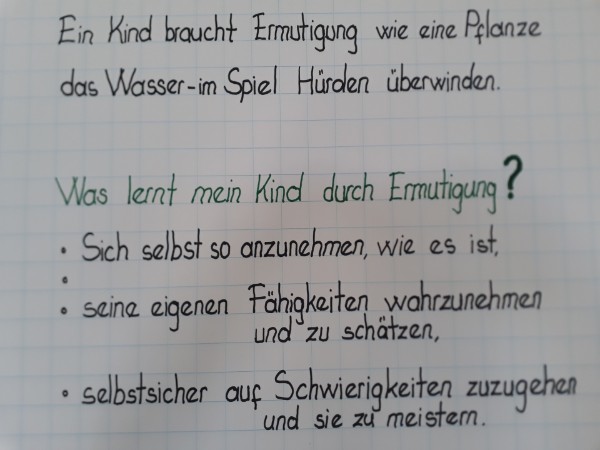 Ein Kind braucht Ermutigung wie eine Pflanze
das Wasser - im Spiel Hürden überwinden.
Was lernt mein Kind durch Ermutigung?
• Sich selbst so anzunehmen, wie es ist,
•
• seine eigenen Fähigkeiten wahrzunehmen
und zu schätzen,
• selbstsicher auf Schwierigkeiten zuzugehen
und sie zu meistern.